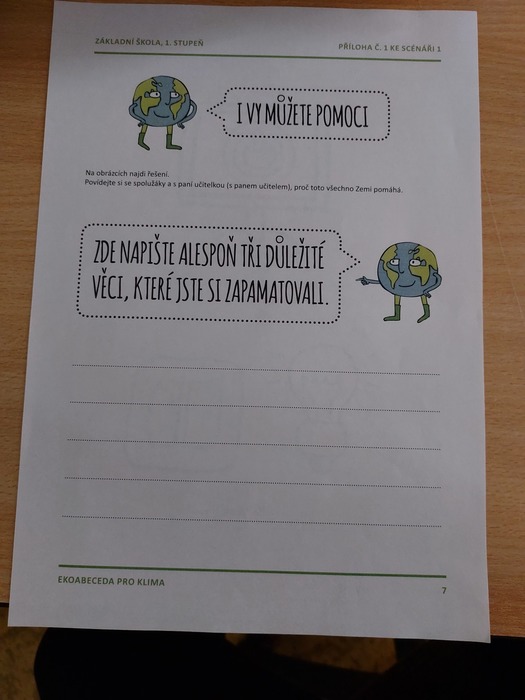 ZÁKLADNÍ ŠKOLA, 1. STUPEŇ
PŘÍLOHA Č. 1 KE SCÉNÁŘI 1
I VY MŮŽETE POMOCI
Na obrázcích najdi řešení.
Povídejte si se spolužáky a s paní učitelkou (s panem učitelem), proč toto všechno Zemi pomáhá.
ZDE NAPIŠTE ALESPOŇ TŘI DŮLEŽITÉ
VĚCI, KTERÉ JSTE SI ZAPAMATOVALI.
EKOABECEDA PRO KLIMA
7